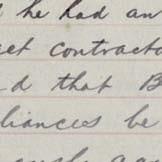 he had an
contracto
d that B
liances be